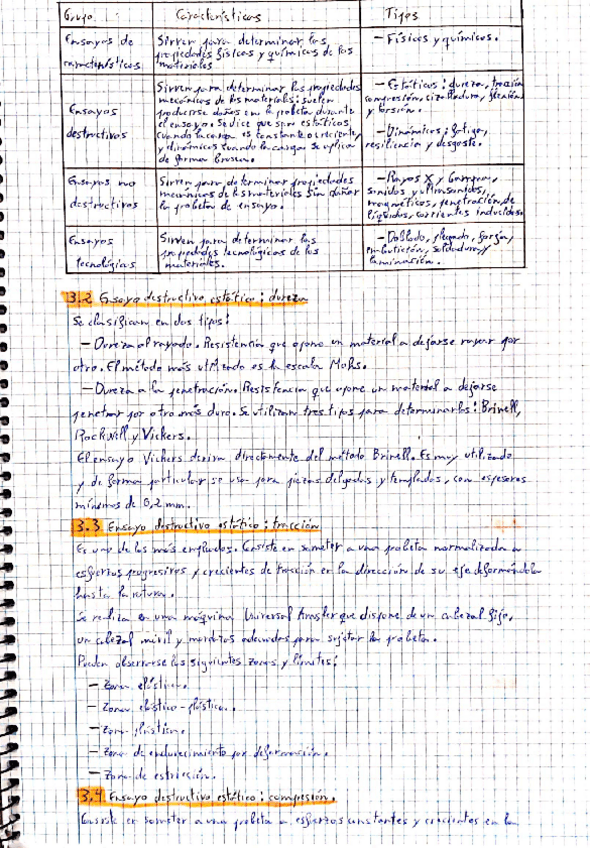 Grupo. Características Tipos
Ensayos de característicos. Sirven para determinar las propiedades físicas y químicas de los materiales — Físicos y químicos.
Ensayos destructivos
Sirven para determinar las propiedades
mecánicas de los materiales: suelen
producirse daños en la probeta durante
el ensayo. Se dice que son estáticos
cuando la carga es constante o creciente,
y dinámicos cuando la carga se aplica
de forma brusca.
— Estáticos: dureza, tracción
compresión, cizalladura, flexión
y torsión.
— Dinámicos: fatiga,
resiliencia y desgaste.
Ensayos no destructivos
Sirven para determinar propiedades
mecánicas de los materiales sin dañar
la probeta de ensayo.
— Rayos X y Gamma,
sonidos y ultrasonidos,
magnéticos, penetración de
líquidos, corrientes inducidas
Ensayos tecnológicos
Sirven para determinar las
propiedades tecnológicas de los
materiales.
— Doblado, plegado, forja,
embutición, soldadura y
laminación.
3.2 Ensayo destructivo estático: dureza
Se clasifican en dos tipos:
— Dureza al rayado. Resistencia que opone un material a dejarse rayar por
otro. El método más utilizado es la escala Mohs.
— Dureza a la penetración. Resistencia que opone un material a dejarse
penetrar por otro más duro. Se utilizan tres tipos para determinarlas: Brinell,
Rockwell y Vickers.
El ensayo Vickers deriva directamente del método Brinell. Es muy utilizado
y de forma particular se usa para piezas delgadas y templadas, con espesores
mínimos de 0,2 mm.
3.3 Ensayo destructivo estático: tracción
Es uno de los más empleados. Consiste en someter a una probeta normalizada a
esfuerzos progresivos y crecientes de tracción en la dirección de su eje deformándola
hasta la rotura.
Se realiza en una máquina Universal Amsler que dispone de un cabezal fijo,
un cabezal móvil y mordazas adecuadas para sujetar la probeta.
Pueden observarse las siguientes zonas y límites:
— Zona elástica.
— Zona elástico-plástica.
— Zona plástica.
— Zona de endurecimiento por deformación.
— Zona de estricción.
3.4 Ensayo destructivo estático: compresión.
Consiste en someter a una probeta a esfuerzos constantes y crecientes en la